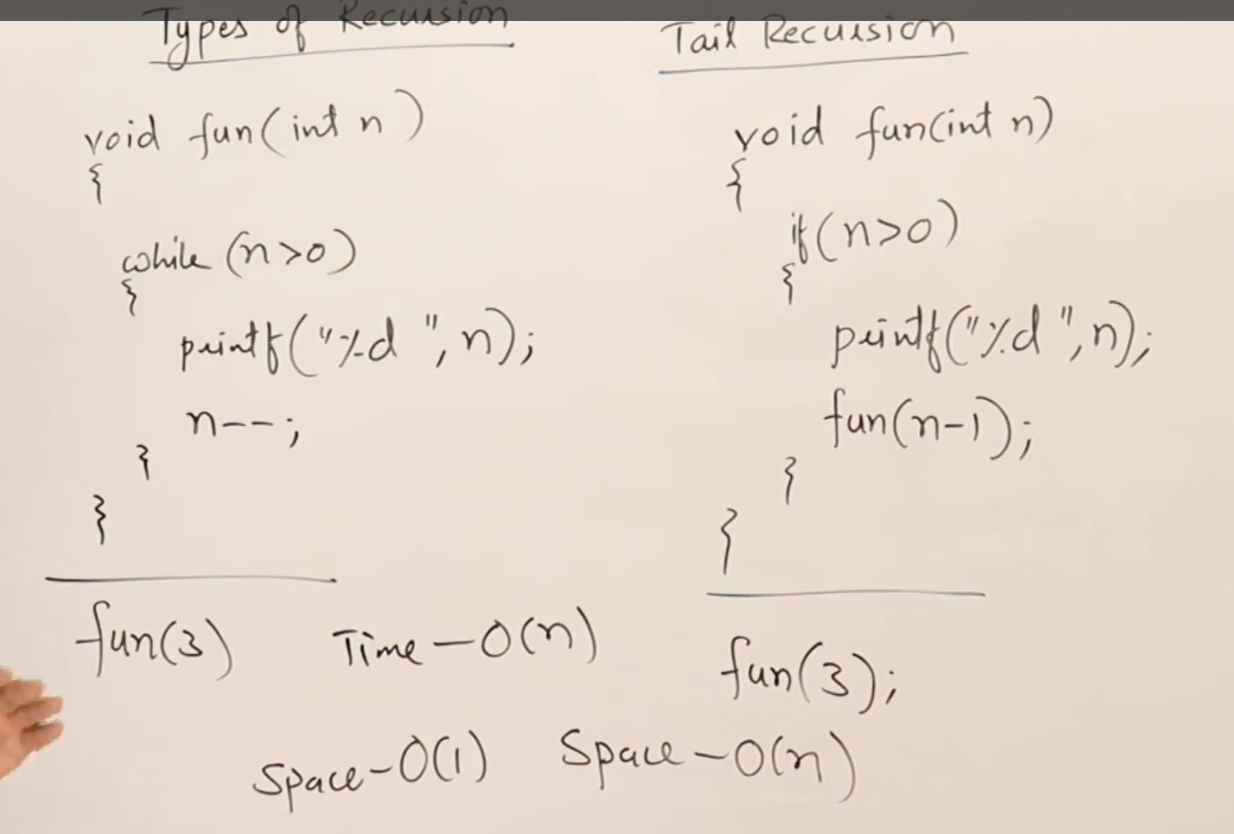 Types of Recursion
void fun(int n)
{
while (n>0)
{
printf("%d ", n);
n--;
}
}
fun(3)
Time-O(n)
Space-O(1)
Tail Recursion
void fun(int n)
{
if(n>0)
{
printf("%d ", n);
fun(n-1);
}
}
fun(3);
Space-O(n)